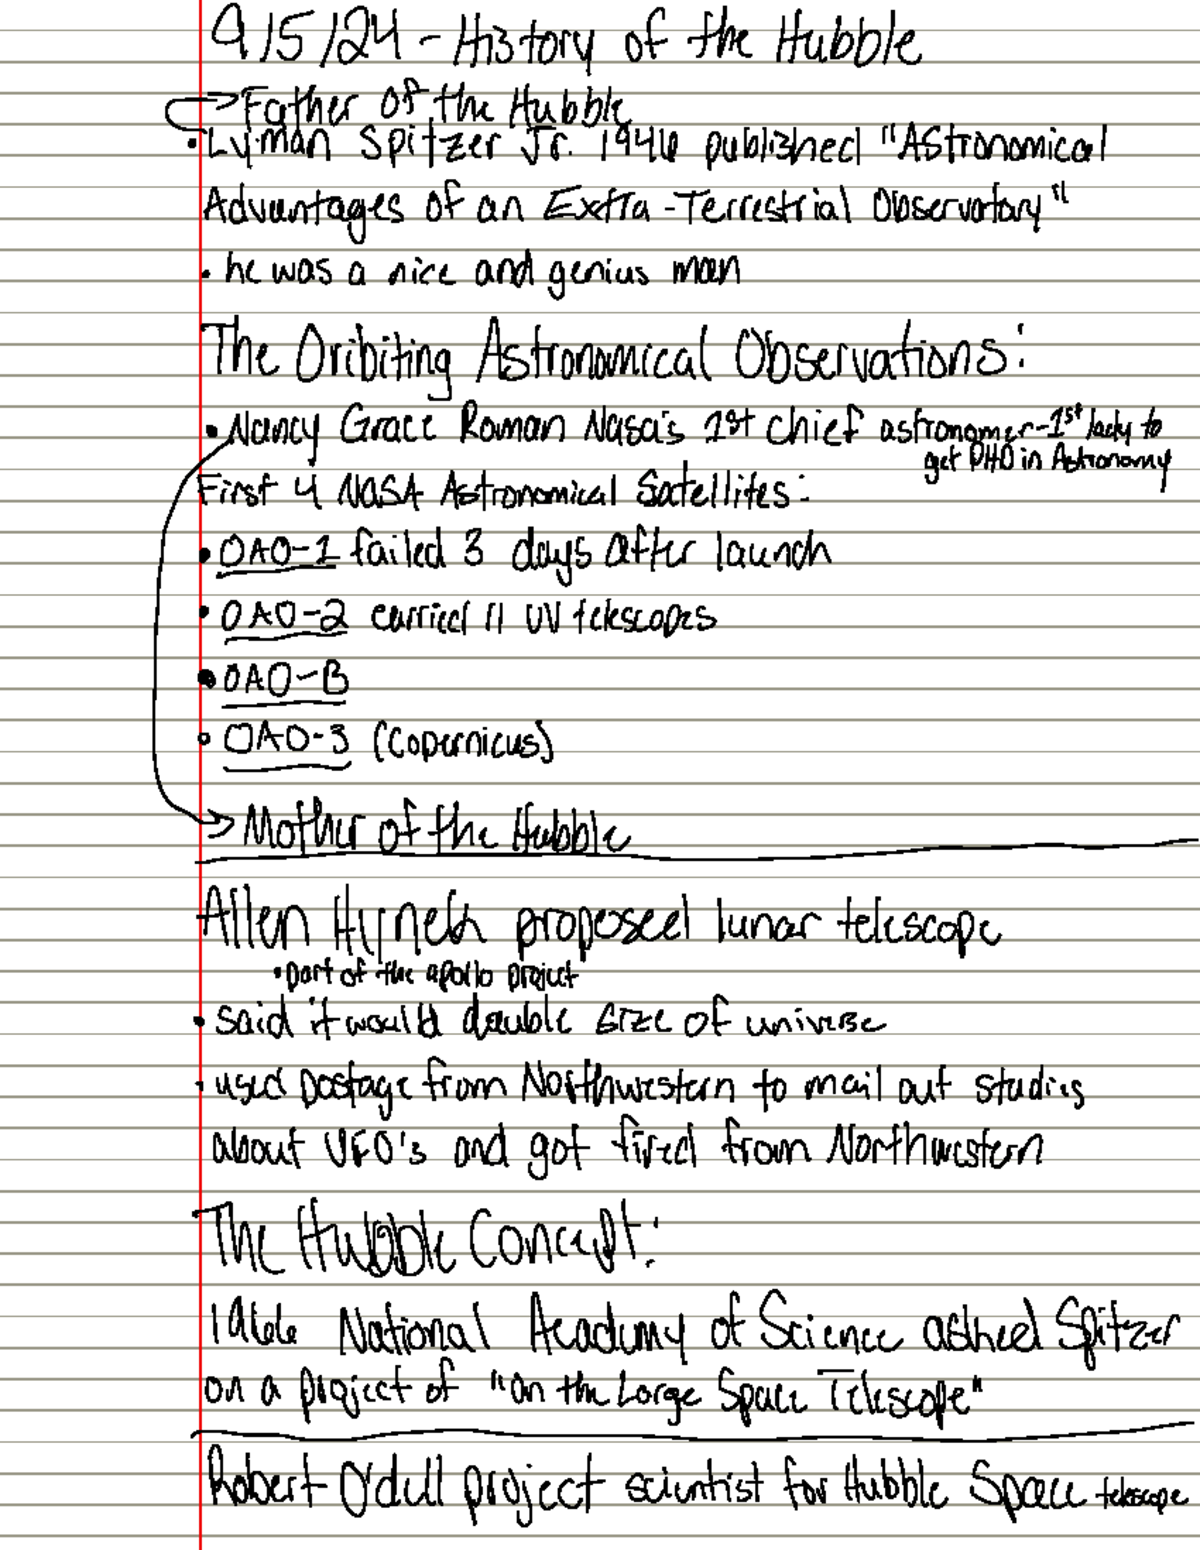 9/5/24 - History of the Hubble
Father of the Hubble
• Lyman Spitzer Jr. 1946 published "Astronomical
Advantages of an Extra-Terrestrial Observatory"
• he was a nice and genius man
The Oribiting Astronomical Observations:
• Nancy Grace Roman Nasa's 1st chief astronomer - 1st lady to
get PHD in Astronomy
First 4 NASA Astronomical Satellites:
• OAO-1 failed 3 days after launch
• OAO-2 carried 11 UV telescopes
• OAO-B
• OAO-3 (Copernicus)
Mother of the Hubble
Allen Hynek proposed lunar telescope
• part of the apollo project
• said it would double size of universe
• used postage from Northwestern to mail out studies
about UFO's and got fired from Northwestern
The Hubble Concept:
1966 National Academy of Science asked Spitzer
on a project of "on the Large Space Telescope"
Robert O'dell project scientist for Hubble Space telescope